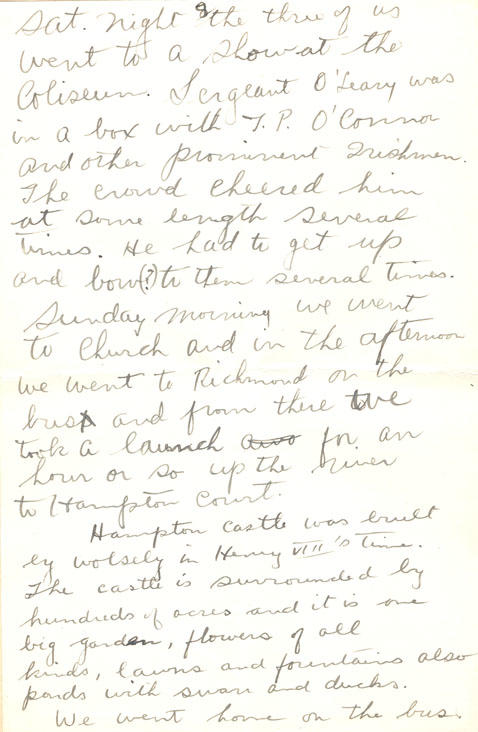 Sat. night the three of us
went to a show at the
Coliseum. Sergeant O'Leary was
in a box with T.P. O'Connor
and other prominent Irishmen.
The crowd cheered him
at some length several
times. He had to get up
and bow(?) to them several times.
Sunday morning we went
to Church and in the afternoon
we went to Richmond on the
bus and from there we
took a launch for an
hour or so up the river
to Hampton Court.
Hampton castle was built
by Wolsely in Henry VIII's time.
The castle is surrounded by
hundreds of acres and it is one
big garden, flowers of all
kinds, lawns and fountains also
ponds with swan and ducks.
We went home on the bus.